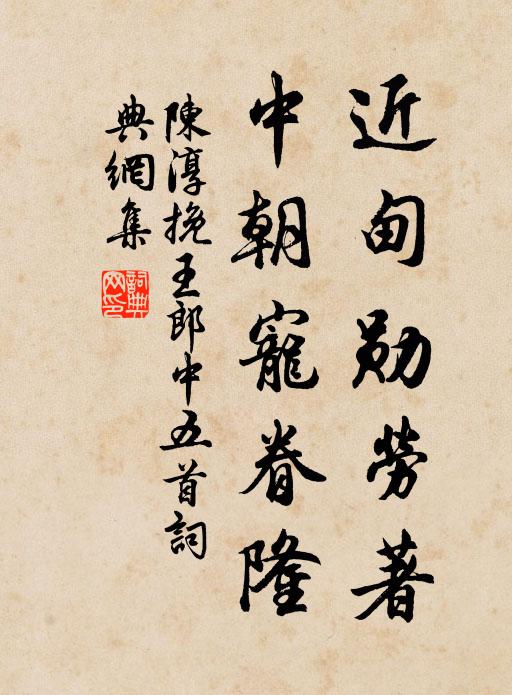 近甸勋勞著
中朝寵眷隆
陳淳挽王郎中五首詞
典網集
詞典
网印